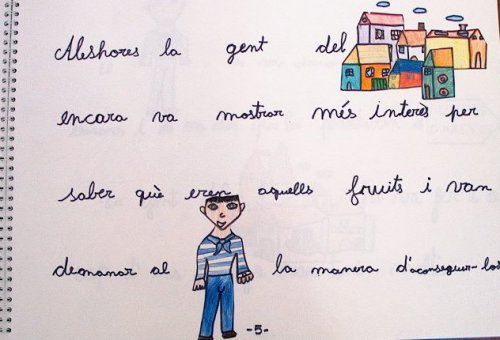 Aleshores la gent del
encara va mostrar més interès per
saber què eren aquells fruits i van
demanar al la manera d'aconseguir-los
-5-